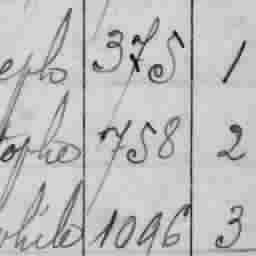 eph 375 1
tophe 758 2
phile 1096 3